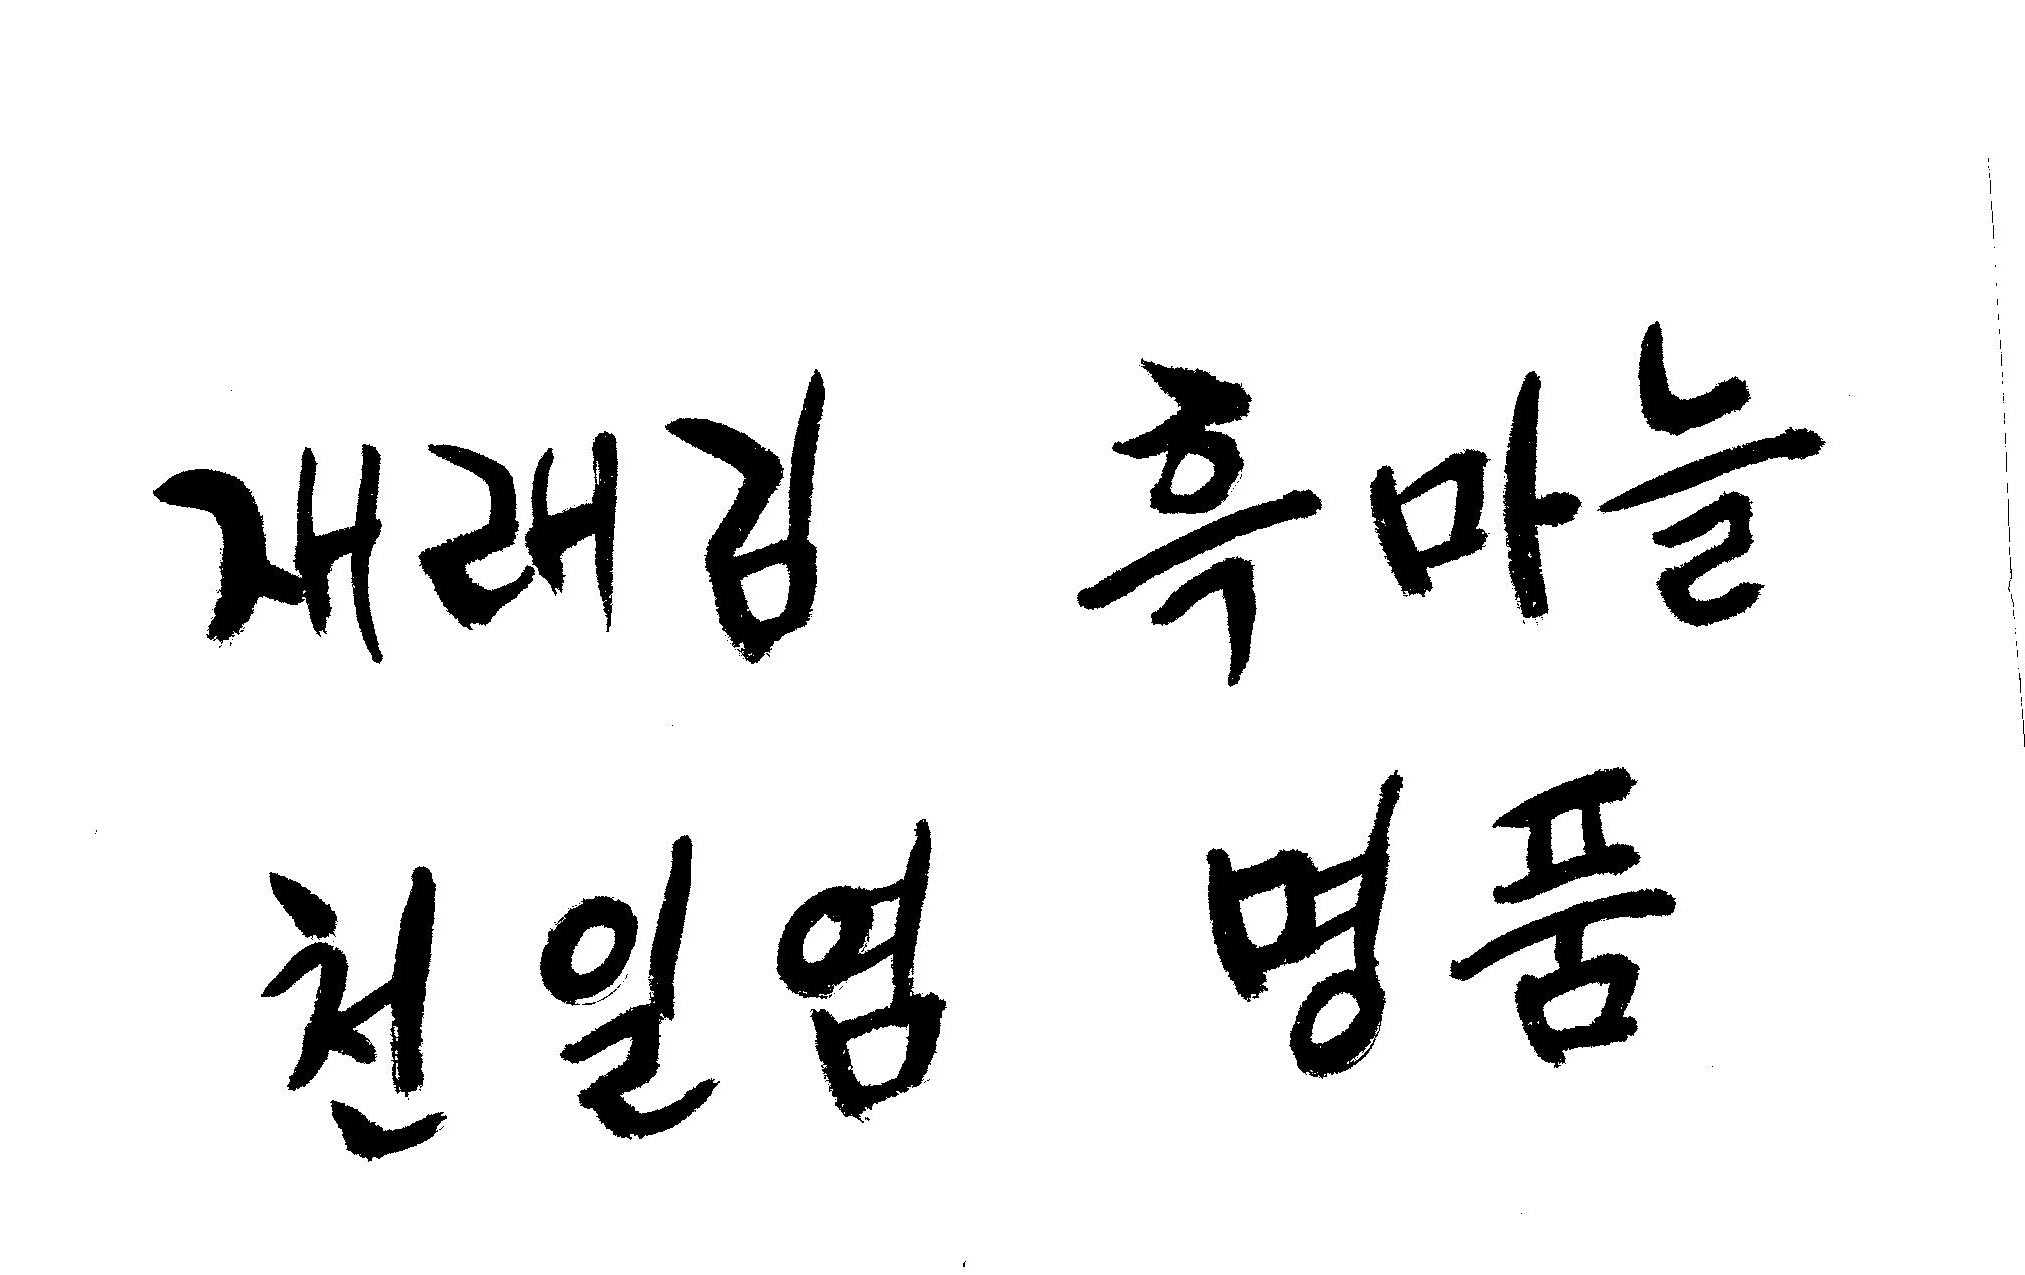 재래김 흑마늘
천일염 명품